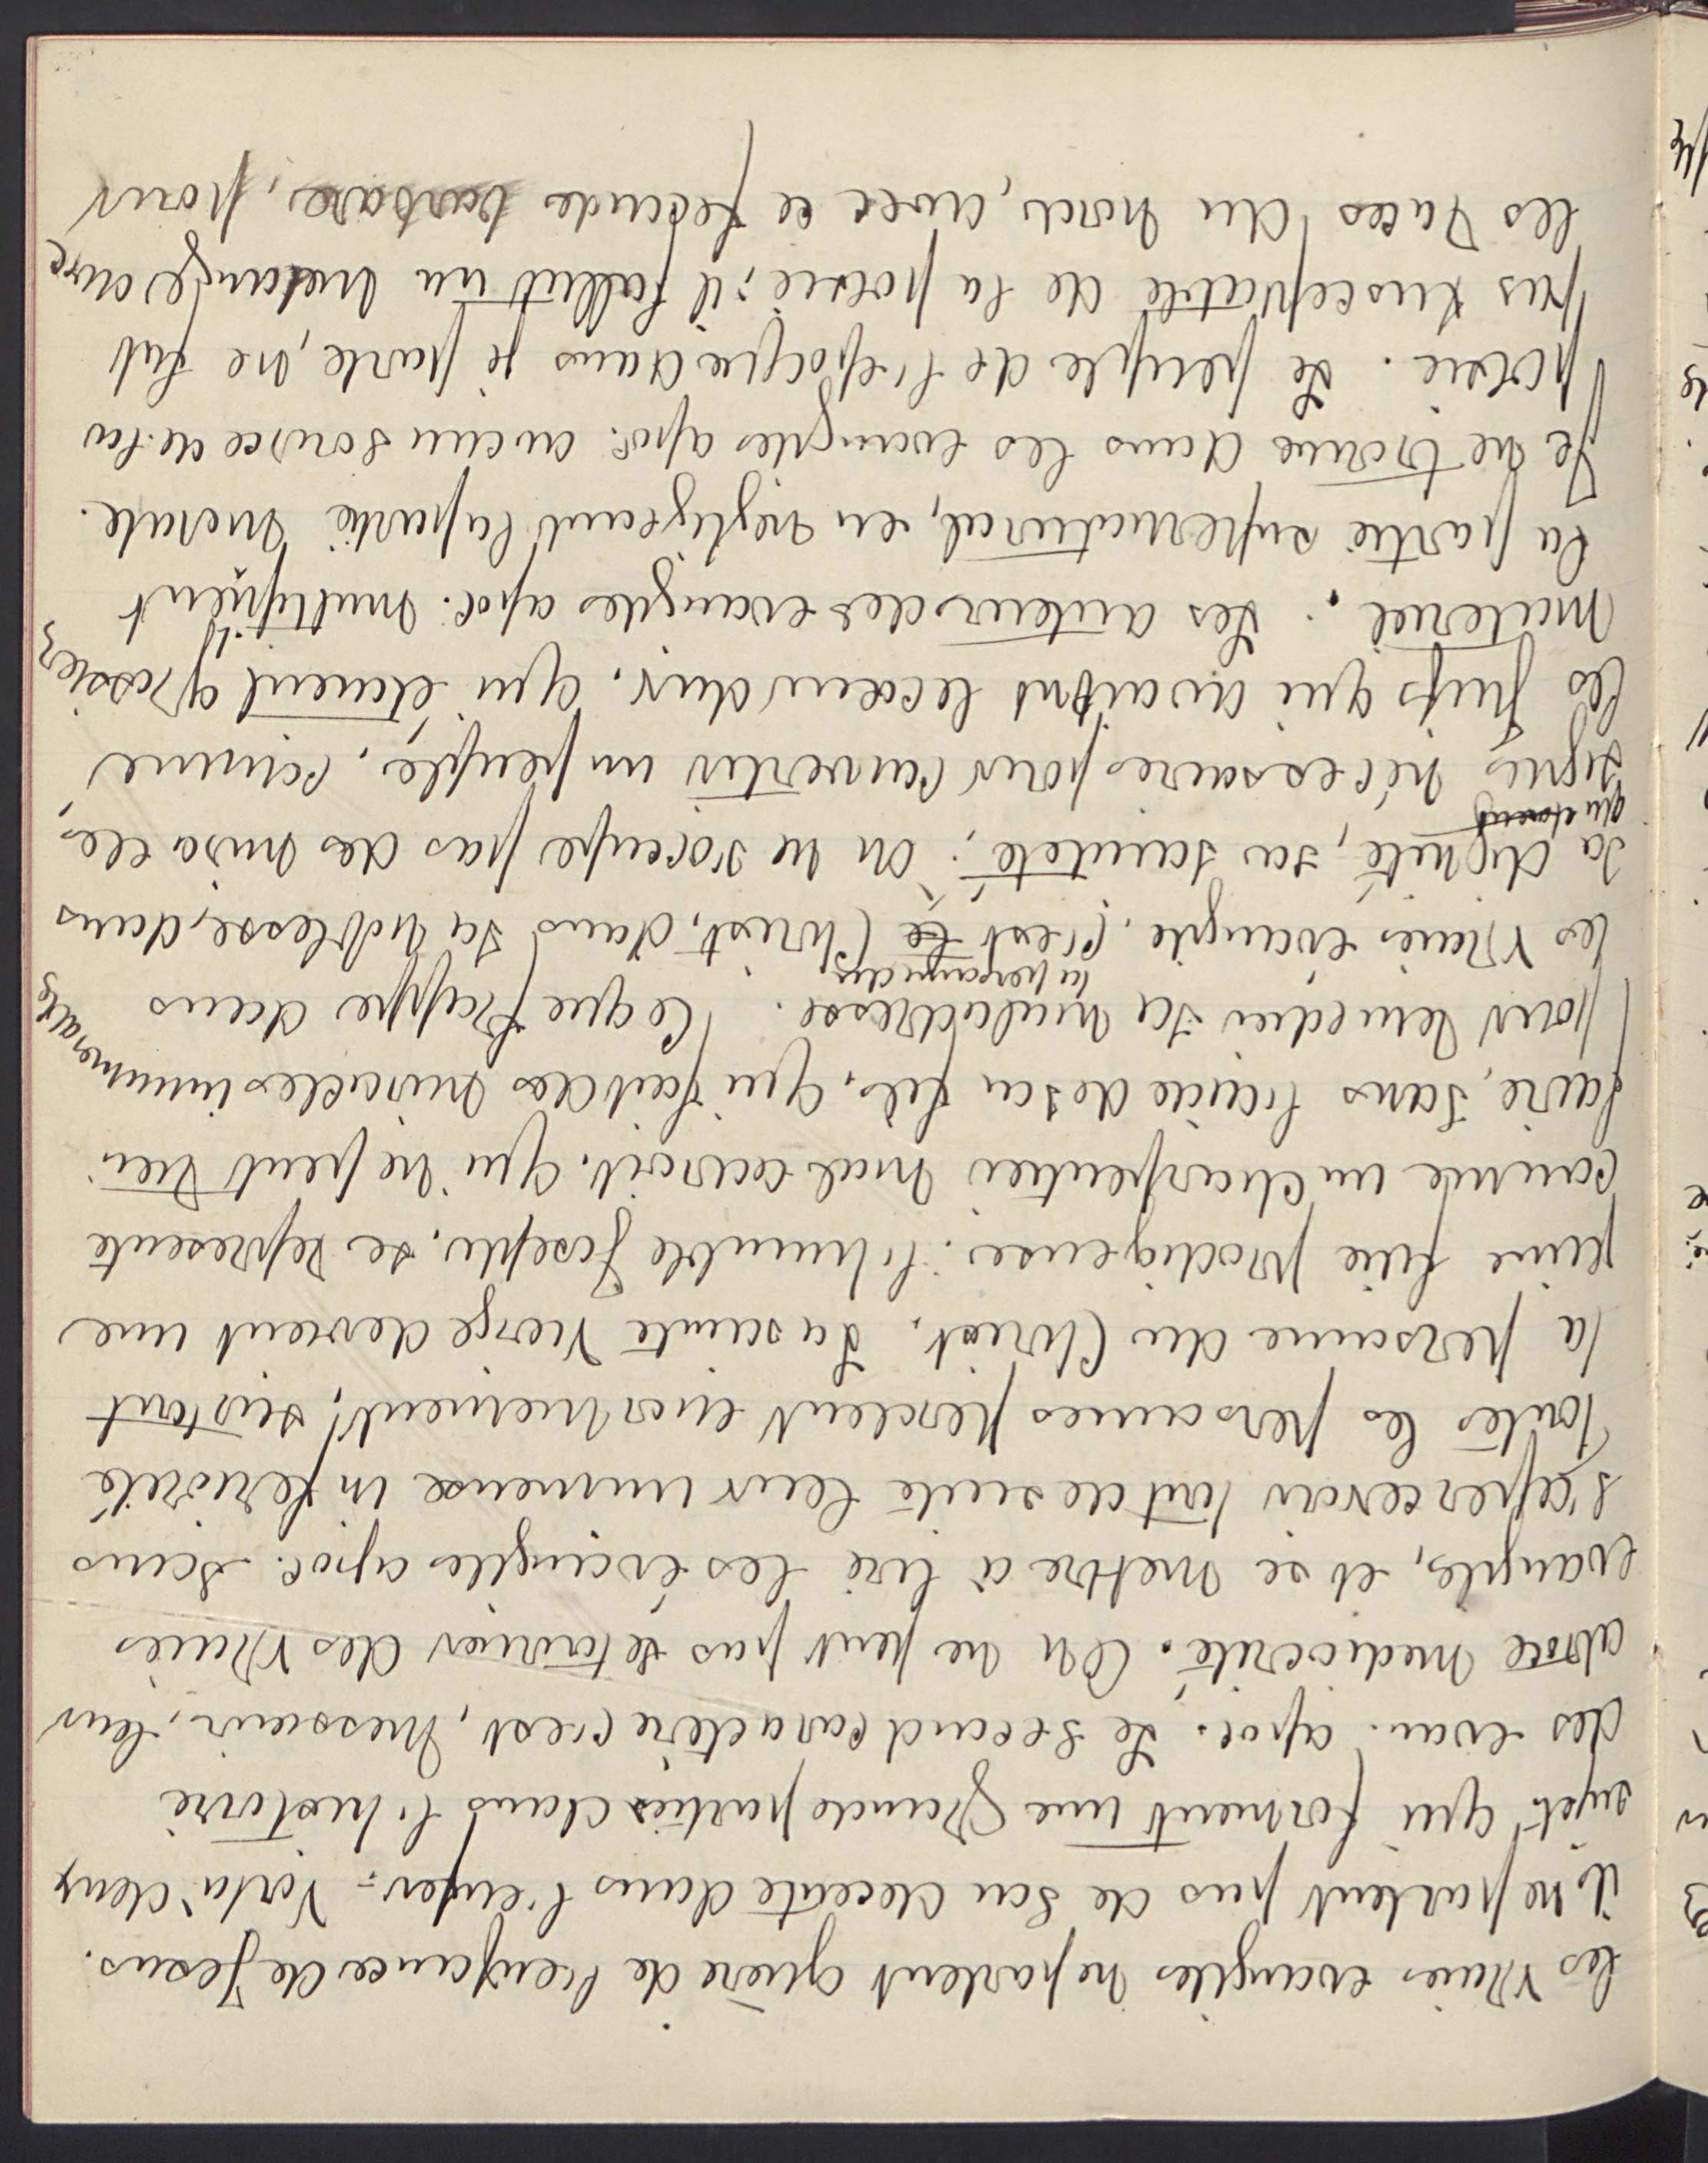 les vraies evangiles ne parlent guère de l'enfance de Jesus.
il ne parlent pas de son decente dans l'enfer - Voila deux
sujet qui forment une grande parties dans l'histoire
des evan. apoc. Le second caractère c'est, Messieur, leur
atroce mediocrité. On ne peut pas detourner des vraies
evangiles, et se mettre à lire les évangiles apoc. sans
s'appercevoir tout de suite leur immense inferiorité
Toutes les personnes perdent enormement, surtout
la personne du Christ. La sainte Vierge devient une
jeune fille prodigieuse. l'humble Joseph, se represente
comme un charpentier mal adroit. qui ne peut rien
faire, sans l'aide de sa fils, qui fait des miracles innummerable
pour remedier sa maladresse. Ce que frappe dans
les vraies évangile, c'est le la personne du Christ, dans sa noblesse, dans
sa dignité, sa sainteté; on ne s'occupe pas des miracles
qui etaient
signes nécessaires pour convertir un peuple, comme
les Juifs qui avaient le cœur dur, qui étaient grossier
materiel. Les auteurs des evangiles apoc. multiplient
la partie supernatural, en négligeant la partie morale.
Je ne trouve dans les evangiles apoc. aucun source de la
poésie. Le peuple de l'epoque dans je parle, ne fut
pas susceptible de la poésie; il fallut un melange avec
les races du nord, avec ce feconde barbare, pour